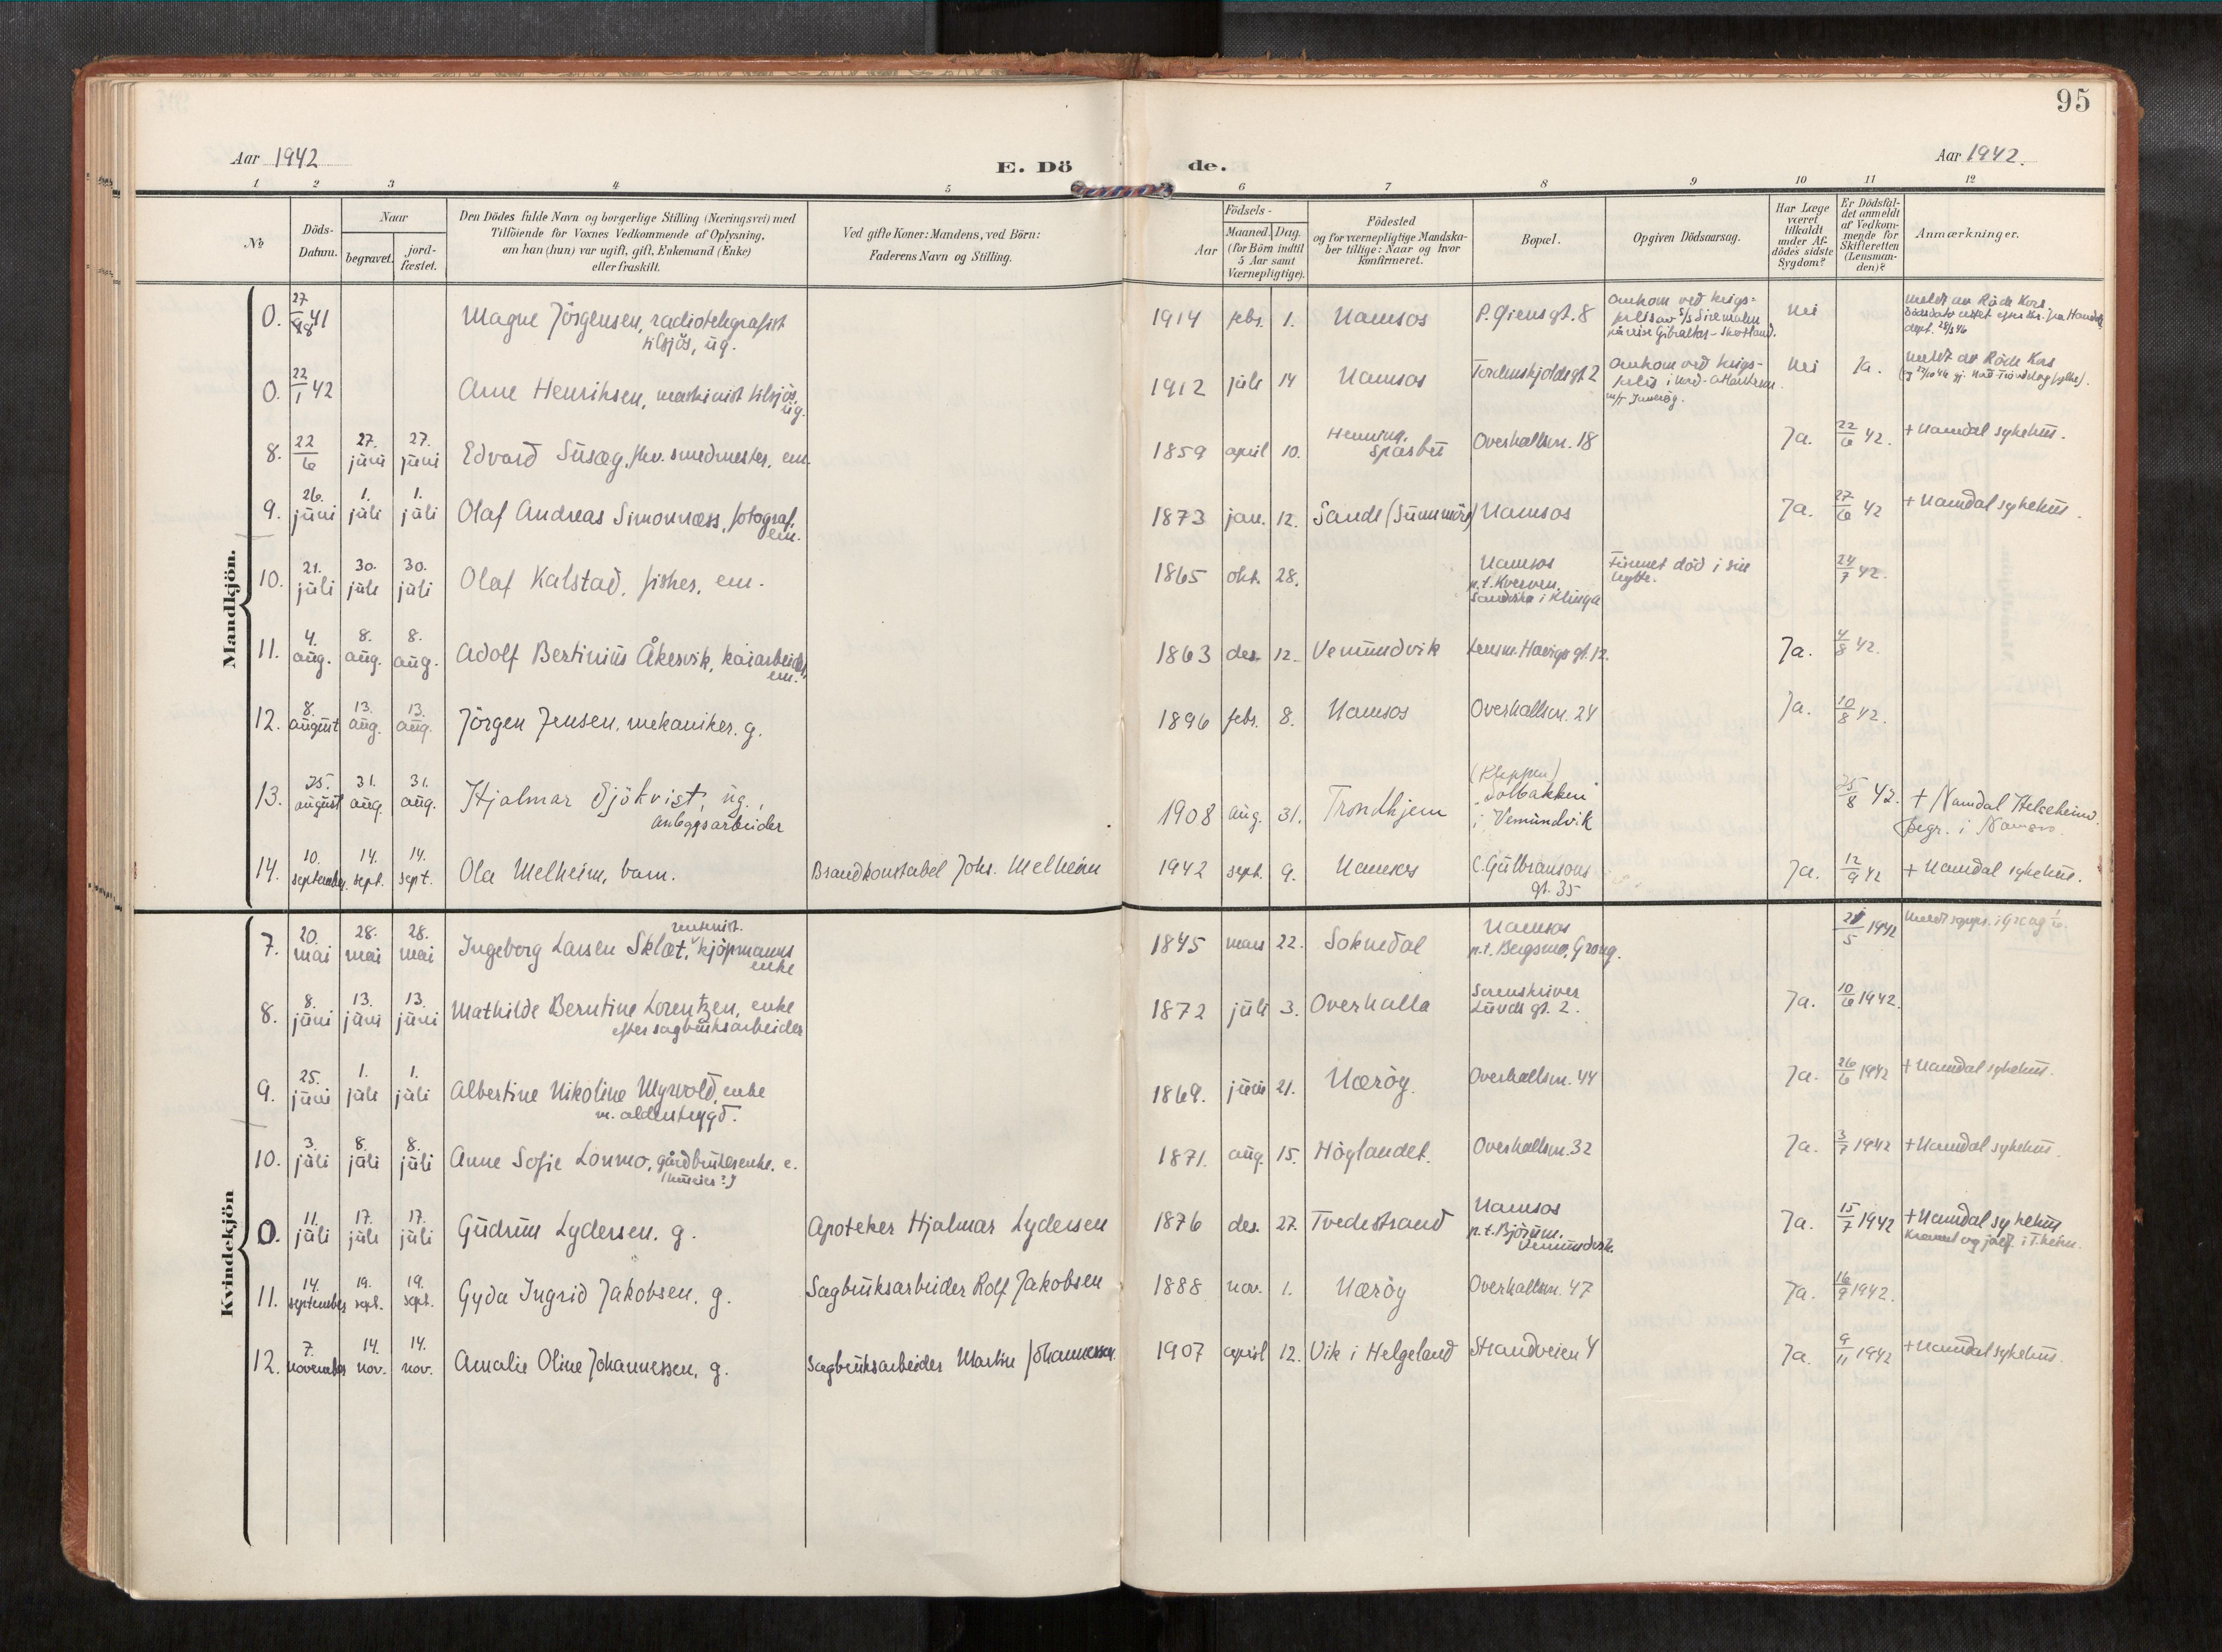 95
Aar 1942
E. Dö de.
Aar 1942.
1 2 3 4 5 6 7 8 9 10 11 12
№
Döds-
Datum.
Naar
begravet.
jord-
fæstet.
Den Dödes fulde Navn og borgerlige Stilling (Næringsvei) med
Tilföiende for Voxnes Vedkommende af Oplysning,
om han (hun) var ugift, gift, Enkemand (Enke)
eller fraskilt.
Ved gifte Koner: Mandens, ved Börn:
Faderens Navn og Stilling.
Födsels-
Aar
Maaned. Dag.
(for Börn indtil
5 Aar samt
Værnepligtige).
Födested
og for værnepligtige Mandska-
ber tillige: Naar og hvor
konfirmeret.
Bopæl.
Opgiven Dödsaarsag.
Har Læge
været
tilkaldt
under Af-
dödes sidste
Sygdom?
Er Dödsfal-
det anmeldt
af Vedkom-
mende for
Skifteretten
(Lensman-
den)?
Anmærkninger.
Mandkjön.
0. 27 41 Magne Jörgensen, radiotelegrafist
tilsjös, ug.
1914 febr. 1. Namsos P. Giensgt. 8 Omkom ved krigs-
forlis av S/S Siremalm
på reise Gibraltar-Skottland.
Nei
meldt av Röde Kors.
0. 22/1 42 Arne Henriksen, maskinist tilsjös,
ug.
1912 juli 14 Namsos Tordenskjoldsgt 2 Omkom ved krigs-
forlis i Nord-Atlanteren
m/T Inneröy.
Nei Ja.
meldt av Röde Kors
8. 22/6 27. juni 27. juni Edvard Susæg, fhv. smedmester, em.
1859 april 10. Henning,
Sparbu
Overhallsvn. 18 Ja. 22/6 42. + Namdal sykehus.
9. 26. juni 1. juli 1. juli Olaf Andreas Simonnæss, fotograf,
em.
1873 jan. 12. Sande (Sunnmöre) Namsos Ja. 27/6 42 + Namdal sykehus.
10. 21. juli 30. juli 30. juli Olaf Kalstad, fisker, em.
1865 okt. 28. Namsos
p.t. Kverven,
Sandvika i Klinga
Funnet död i sin
hytte.
24/7 42.
11. 4. aug. 8. aug. 8. aug. Adolf Bertinius Åkervik, kaiarbeider,
em.
1863 des. 12. Vemundvik Lensm. Havigs gt. 12. Ja. 4/8 42.
12. 8. august 13. aug. 13. aug. Jörgen Jensen, mekaniker. g.
1896 febr. 8. Namsos Overhallsvn. 24 Ja. 10/8 42.
13. 25. august 31. aug. 31. aug. Hjalmar Sjökvist, ug.,
anleggsarbeider
1908 aug. 31. Trondhjem (Kleppen)
"Solbakken"
i Vemundvik
25/8 42. + Namdal Helseheim.
begr. i Namsos.
14. 10. september 14. sept. 14. sept. Ola Melheim, barn. Brandkonstabel Johs. Melheim
1942 sept. 9. Namsos C. Gulbransons
gt. 35
Ja. 12/9 42 + Namdal sykehus.
Kvindekjön
7. 20. mai 28. mai 28. mai Ingeborg Larsen Sklæt, kjöpmanns
enke
1845 mars 22. Soknedal Namsos
p.t. Bergsmo, Grong.
5 1942
8. 8. juni 13. juni 13. juni Mathilde Berntine Lorentzen, enke
efter sagbruksarbeider
1872 juli 3. Overhalla Sorenskriver
Lunds gt. 2.
Ja. 10/6 1942.
9. 25. juni 1. juli 1. juli Albertine Nikoline Myrvold, enke
m. alderstrygd.
1869. juni 21. Næröy. Overhallsvn. 44 Ja. 26/6 1942 + Namdal sykehus.
10. 3. juli 8. juli 8. juli Anne Sofie Lonmo, gårdbrukerenke. e.
1871. aug. 15. Höylandet. Overhallsvn. 32 Ja. 3/7 1942 + Namdal sykehus.
0. 11. juli 17. juli 17. juli Gudrun Lydersen. g. Apoteker Hjalmar Lydersen
1876 des. 27. Tvedestrand Namsos
p.t. Björum,
Vemundvik.
Ja. 15/7 1942 + Namdal sykehus
Kremert og jordf. i T.heim.
11. 14. september 19. sept. 19. sept. Gyda Ingrid Jakobsen. g. Sagbruksarbeider Rolf Jakobsen
1888 nov. 1. Næröy Overhallsvn. 47 Ja. 16/9 1942.
12. 7. november 14. nov. 14. nov. Amalie Oline Johannessen, g. Sagbruksarbeider Martin Johannessen.
1907 april 12. Vik i Helgeland Strandveien 4 Ja. 9/11 1942 + Namdal sykehus.